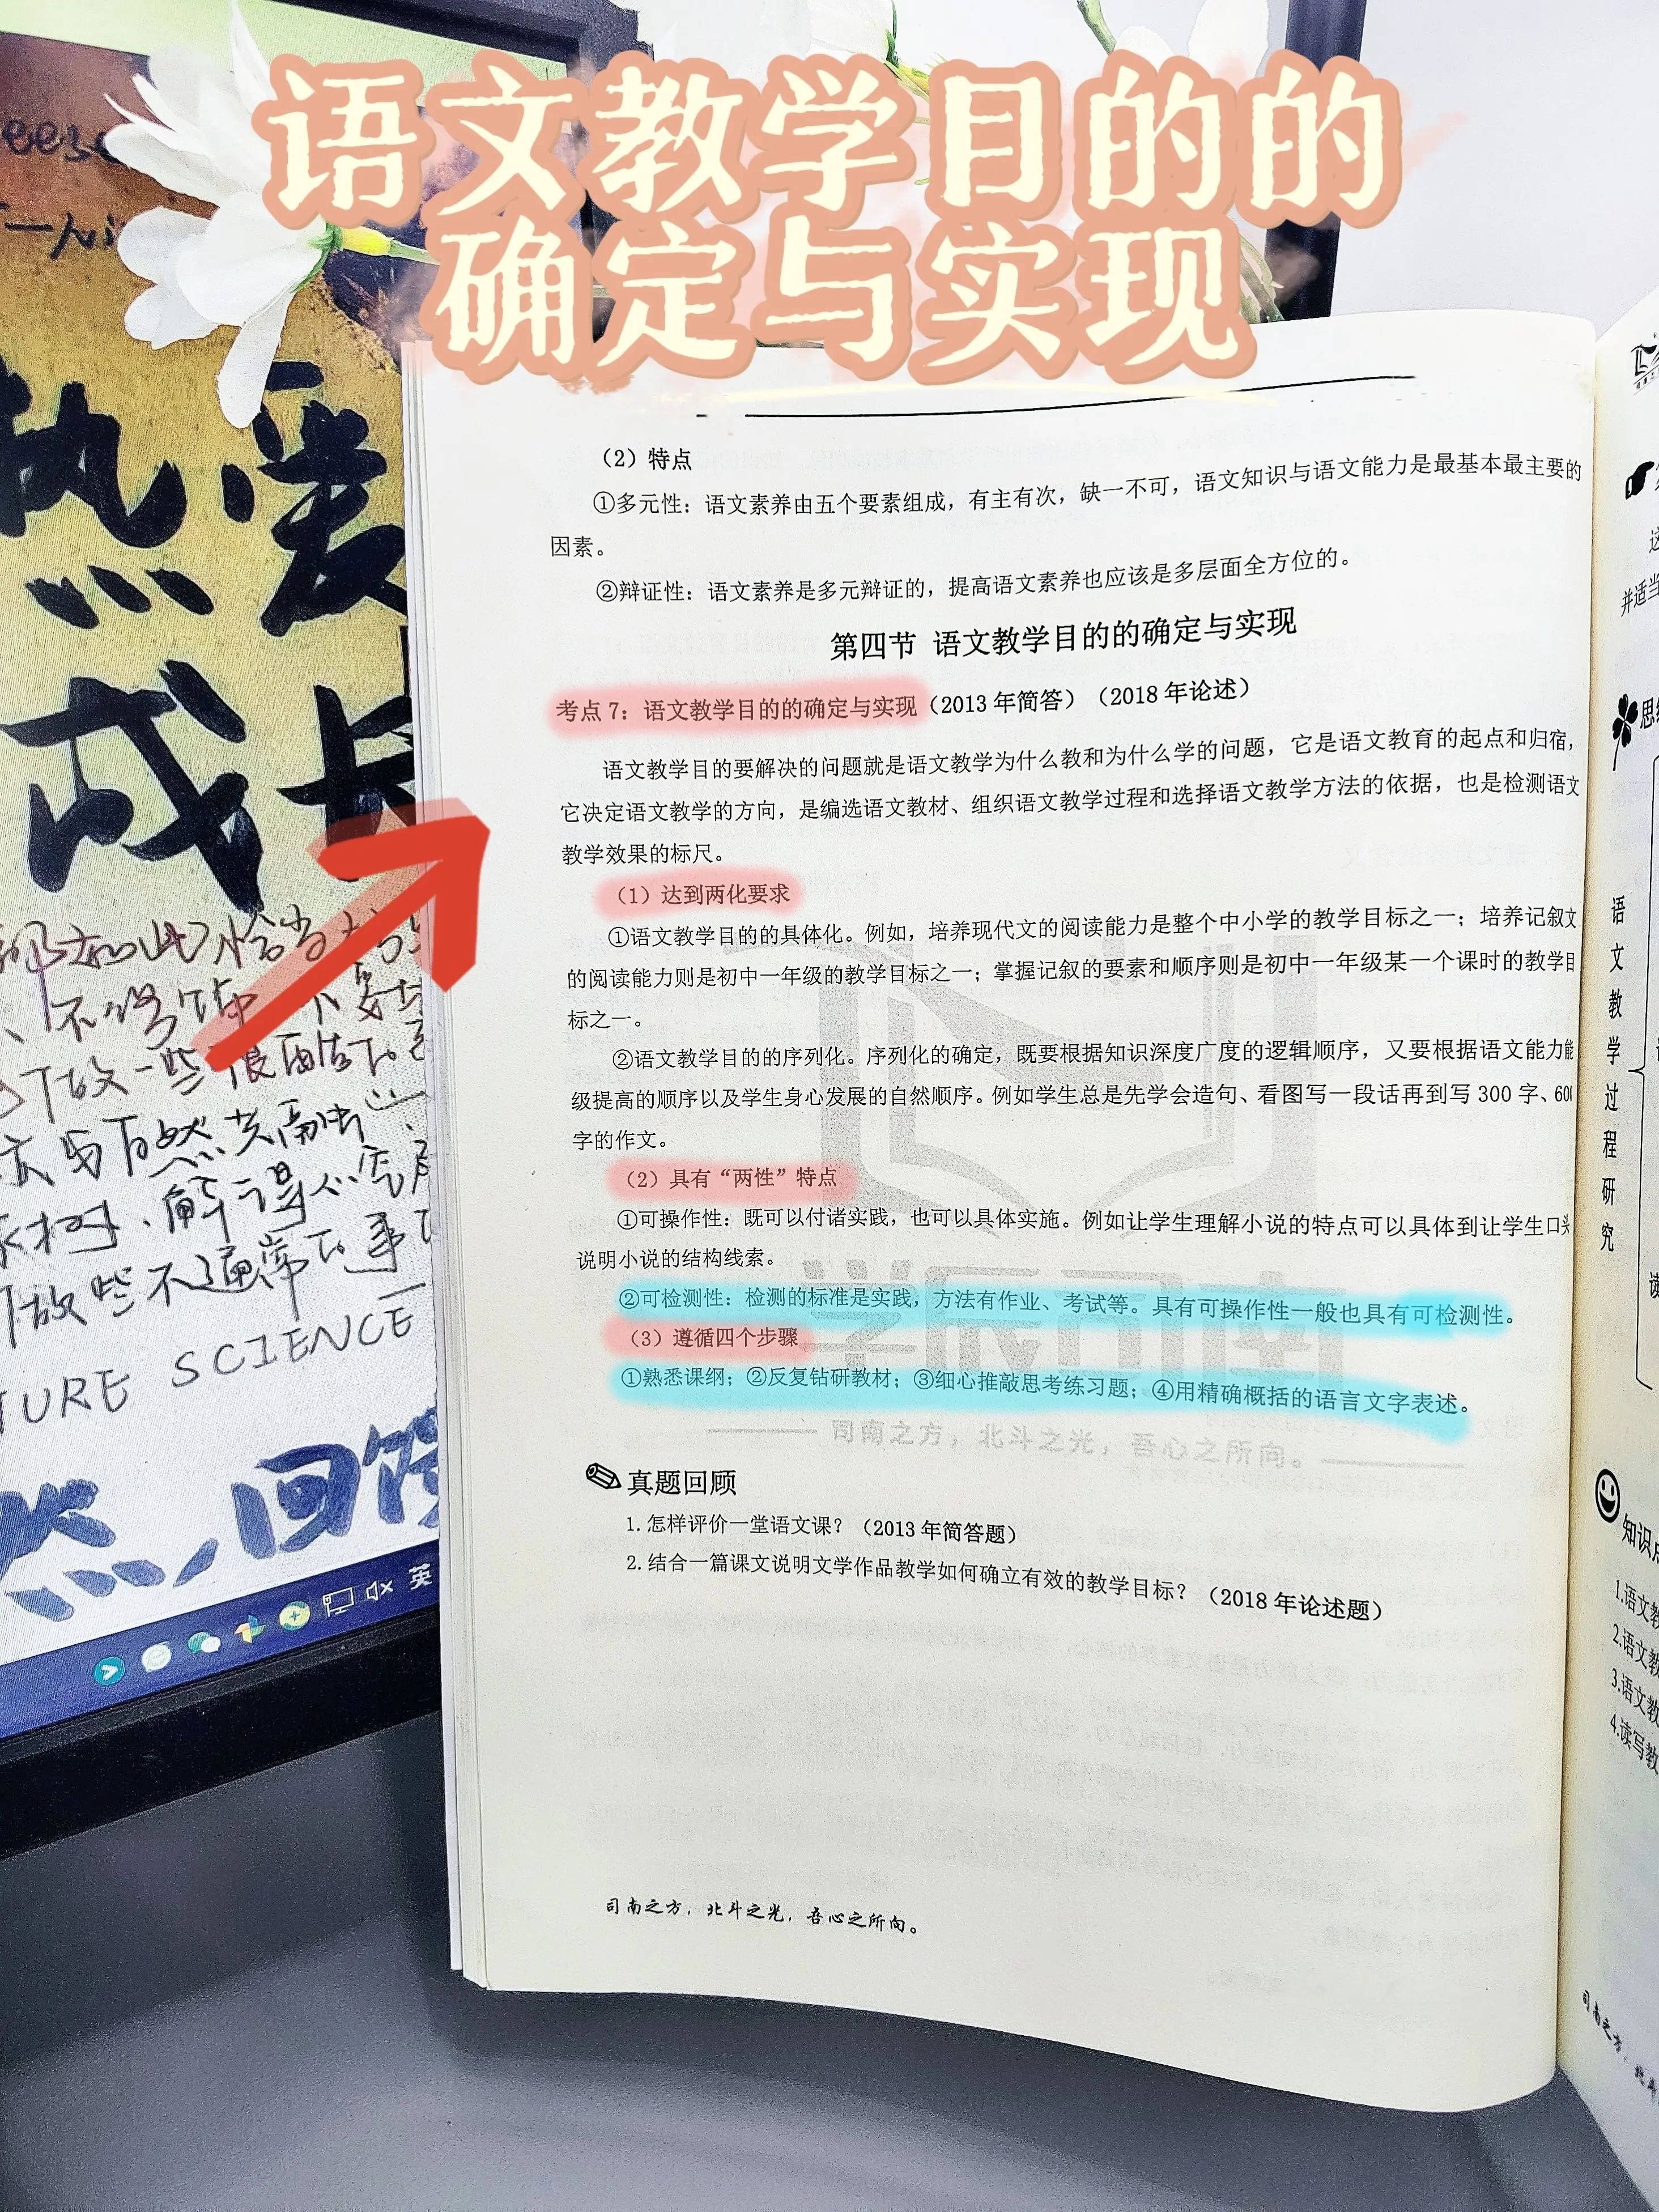 语文教学目的的
确定与实现
热爱
成长
TURE SCIENCE
英
（2）特点
①多元性：语文素养由五个要素组成，有主有次，缺一不可，语文知识与语文能力是最基本最主要的
因素。
②辩证性：语文素养是多元辩证的，提高语文素养也应该是多层面全方位的。
第四节 语文教学目的的确定与实现
考点 7：语文教学目的的确定与实现（2013 年简答）（2018 年论述）
语文教学目的要解决的问题就是语文教学为什么教和为什么学的问题，它是语文教育的起点和归宿，
它决定语文教学的方向，是编选语文教材、组织语文教学过程和选择语文教学方法的依据，也是检测语文
教学效果的标尺。
（1）达到两化要求
①语文教学目的的具体化。例如，培养现代文的阅读能力是整个中小学的教学目标之一；培养记叙文
的阅读能力则是初中一年级的教学目标之一；掌握记叙的要素和顺序则是初中一年级某一个课时的教学目
标之一。
②语文教学目的的序列化。序列化的确定，既要根据知识深度广度的逻辑顺序，又要根据语文能力能
级提高的顺序以及学生身心发展的自然顺序。例如学生总是先学会造句、看图写一段话再到写 300 字、600
字的作文。
（2）具有“两性”特点
①可操作性：既可以付诸实践，也可以具体实施。例如让学生理解小说的特点可以具体到让学生口头
说明小说的结构线索。
②可检测性：检测的标准是实践，方法有作业、考试等。具有可操作性一般也具有可检测性。
（3）遵循四个步骤
①熟悉课纲；②反复钻研教材；③细心推敲思考练习题；④用精确概括的语言文字表述。
学辰司南
司南之方，北斗之光，吾心之所向。
真题回顾
1.怎样评价一堂语文课？（2013 年简答题）
2.结合一篇课文说明文学作品教学如何确立有效的教学目标？（2018 年论述题）
司南之方，北斗之光，吾心之所向。
并适当
语文教学过程研究
知识点
1.语文教
2.语文教
3.语文教
4.读写教